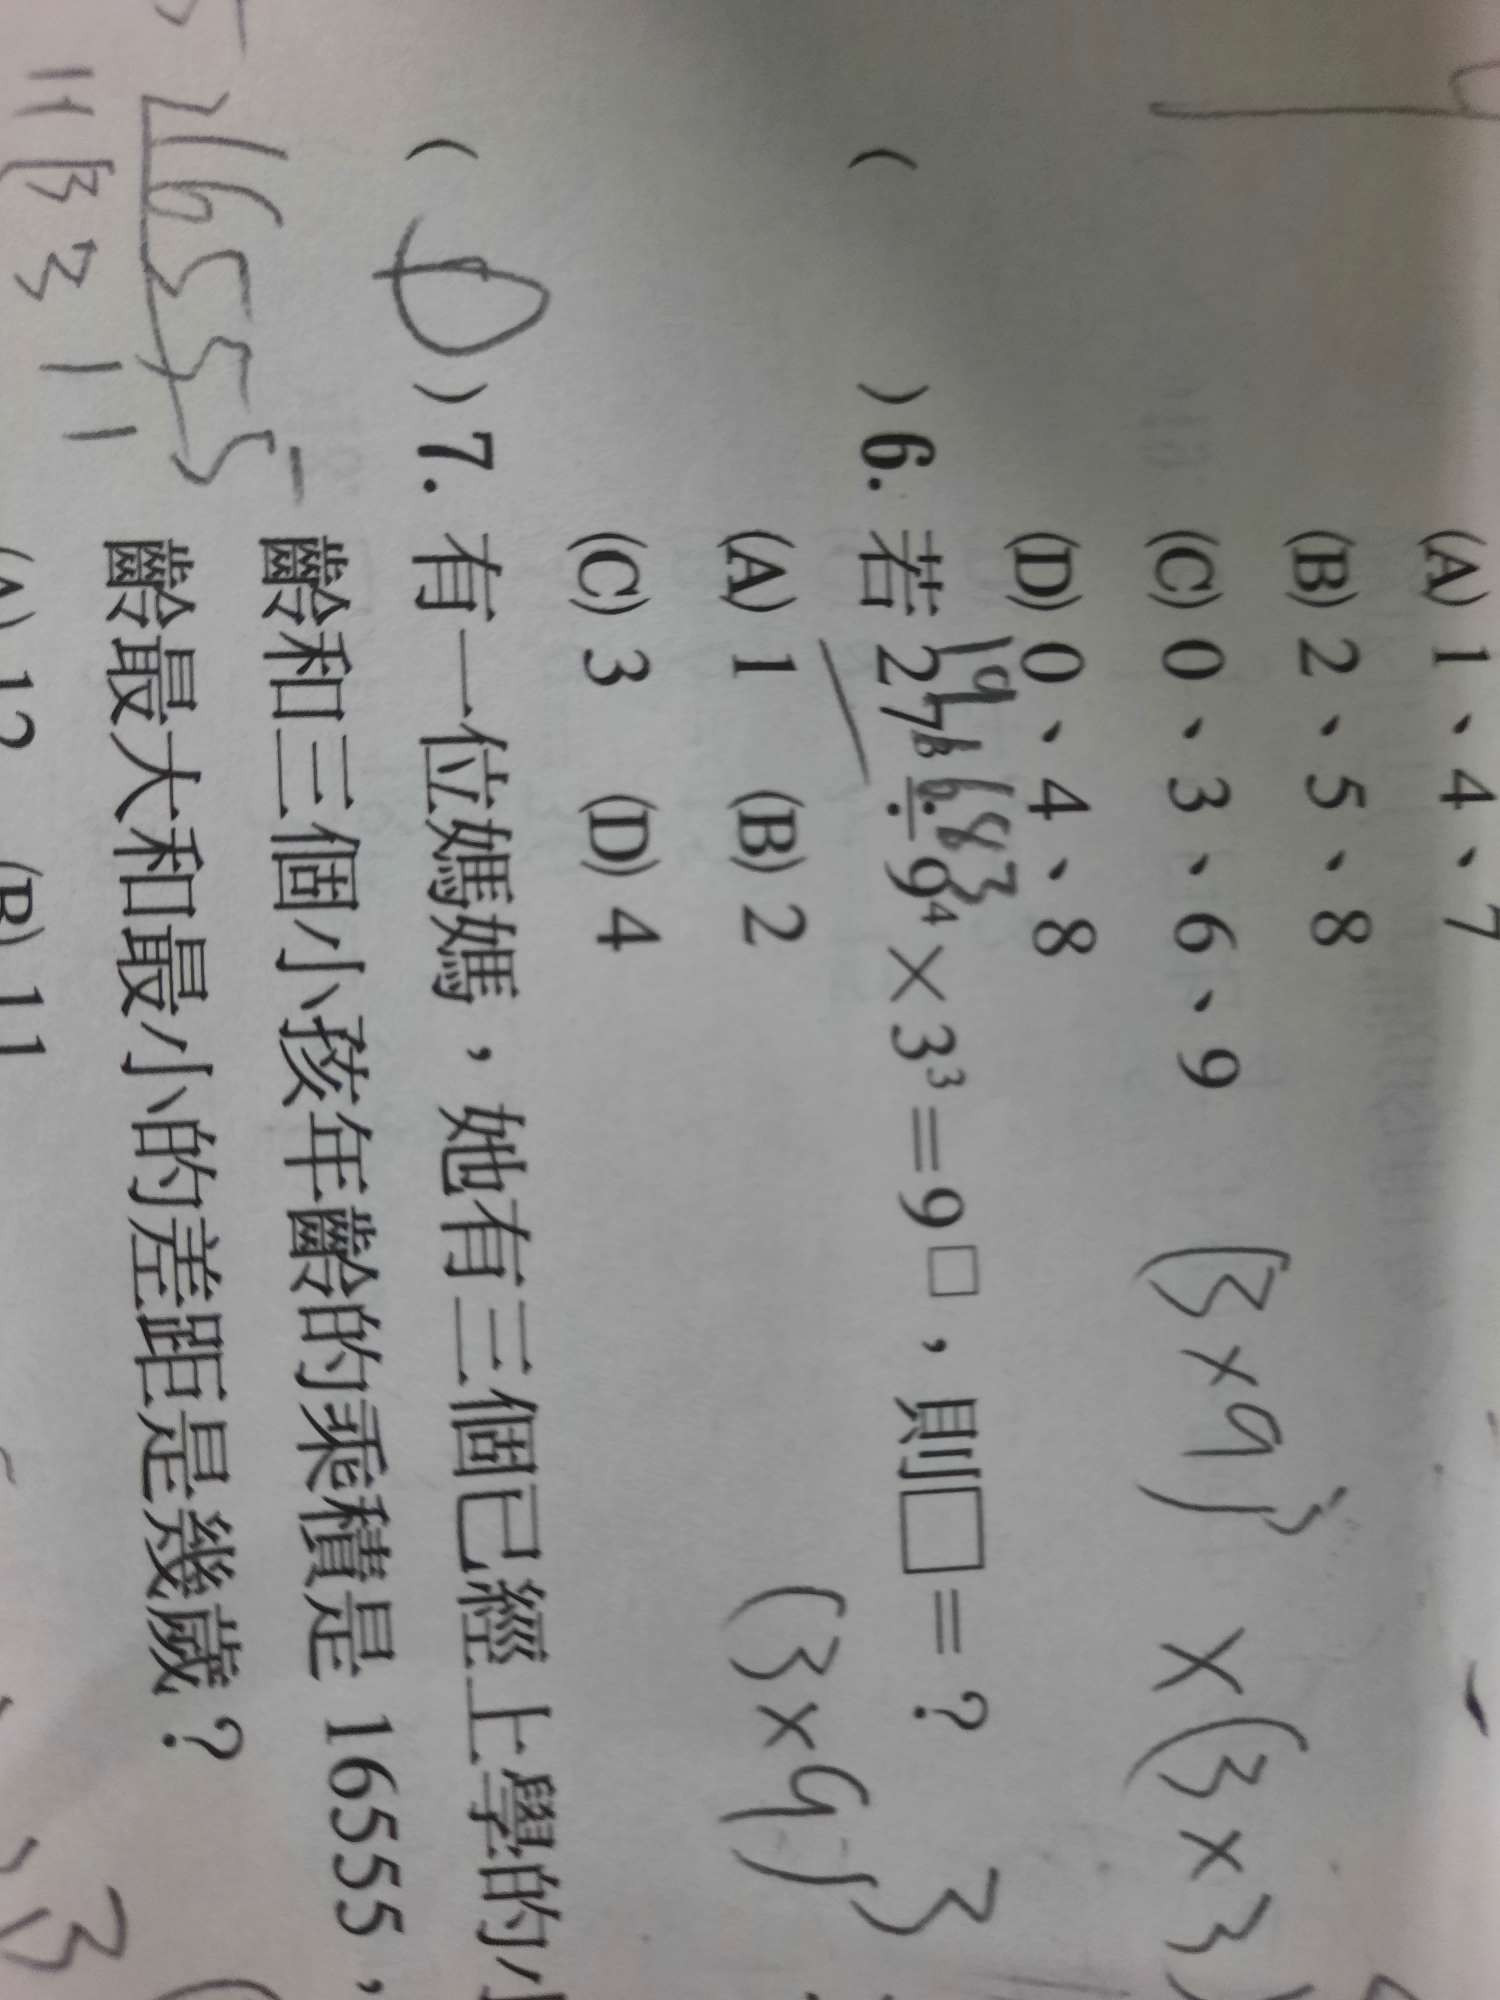 (A) 1、4、7
(B) 2、5、8
(C) 0、3、6、9
(D) 0、4、8
( ) 6. 若 27³÷9⁴×3³=9□，則□=？
(A) 1 (B) 2
(C) 3 (D) 4
(3×9)³ ×(3×3)
(3×9)³
( D ) 7. 有一位媽媽，她有三個已經上學的小
齡和三個小孩年齡的乘積是 16555，
齡最大和最小的差距是幾歲？
(A) 12 (B) 11
16555